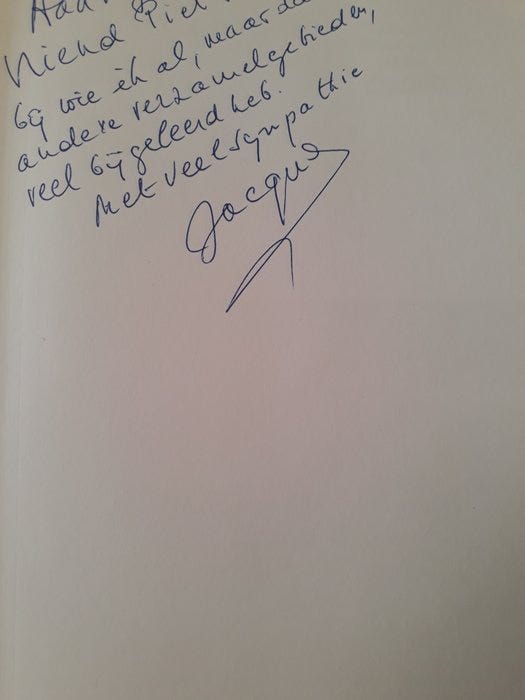 Aan
Vriend Piet
bij wie ik al, maar da
andere verzamelgebieden,
veel bijgeleerd heb.
Met veel sympathie
Jacques